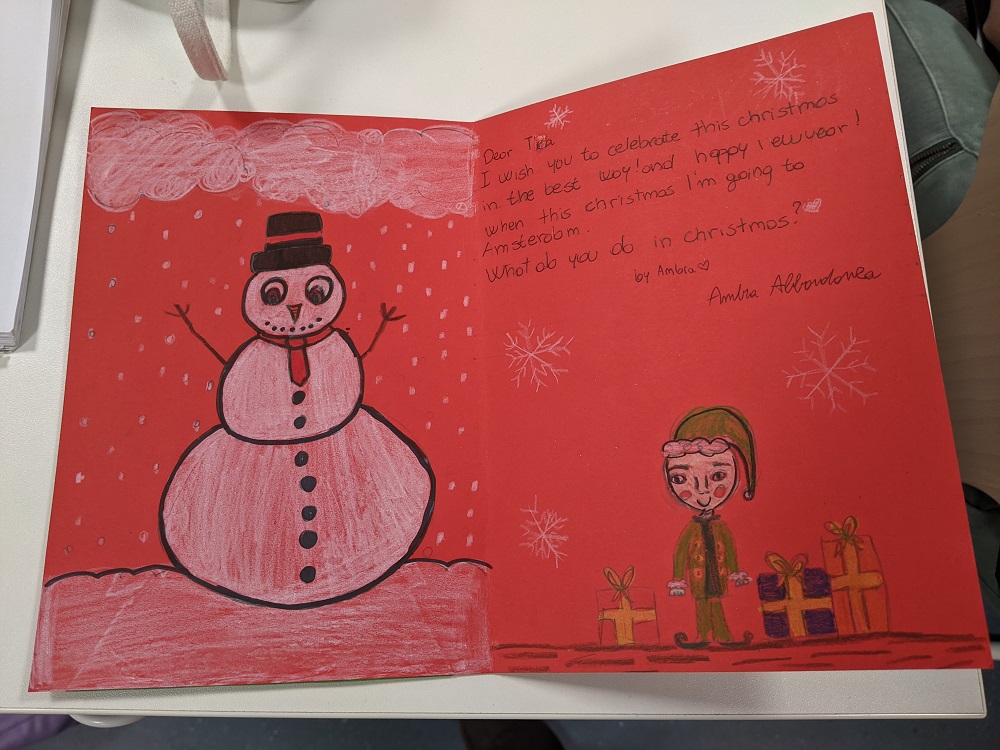 Dear
I wish you to celebrate this christmas
in the best way! and happy new year!
when this christmas I'm going to
Amsterdam.
What do you do in christmas?
by Ambra
Ambra